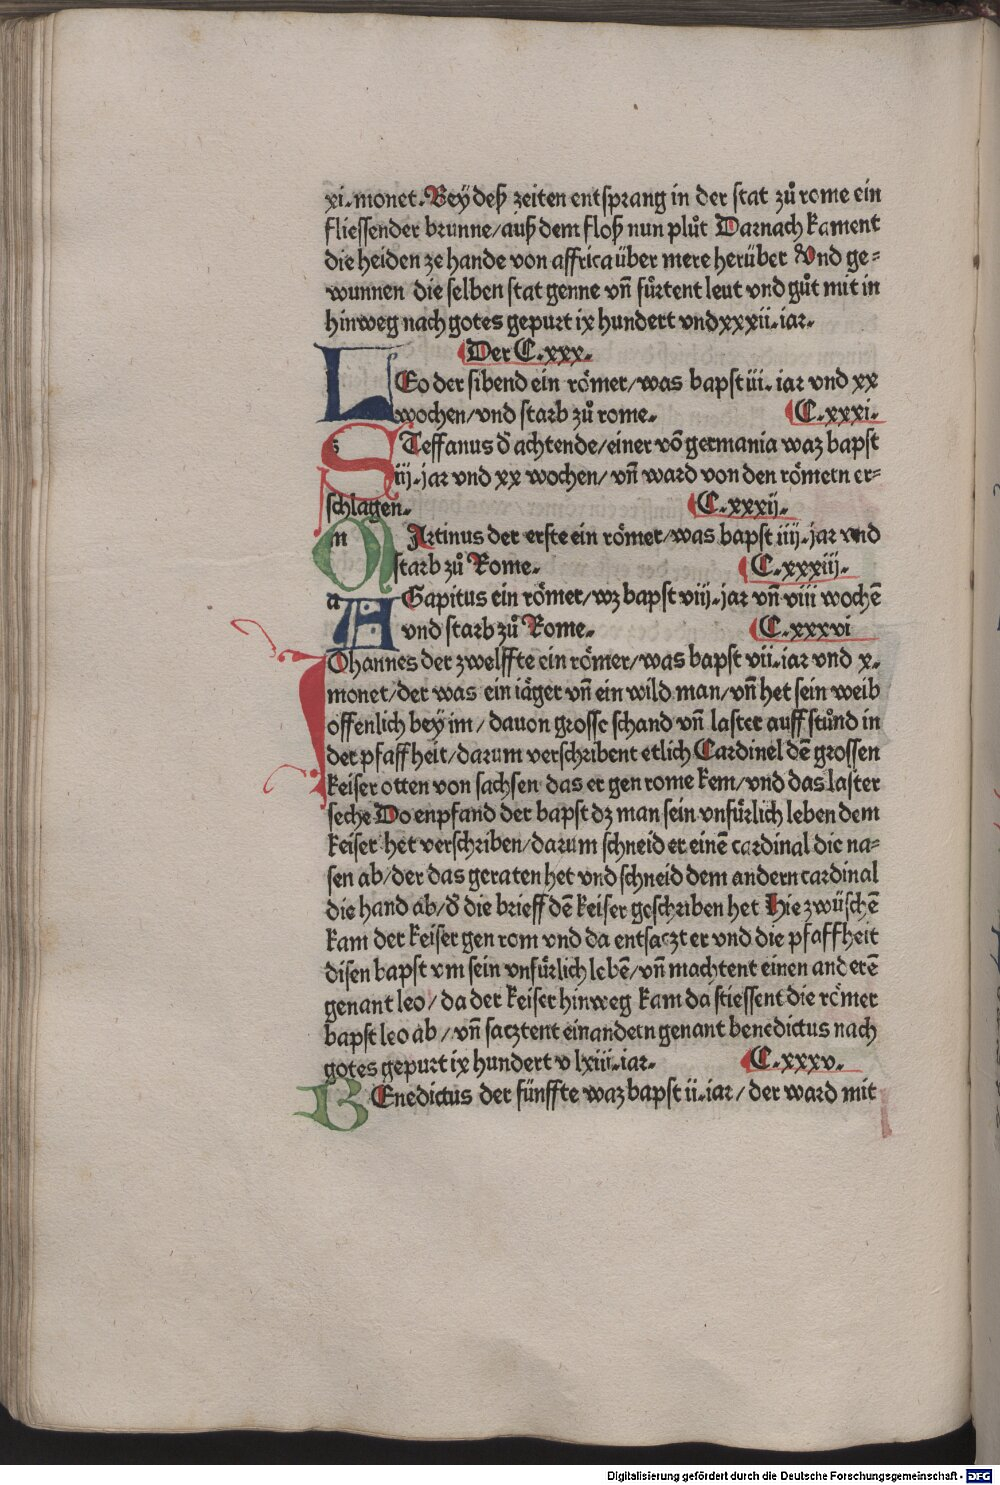 xi. monet. Bey deß zeiten entsprang in der stat zů rome ein
fliessender brunne/ auß dem floß nun plůt Darnach kament
die heiden ze hande von affrica über mere herüber Vnd ge-
wunnen die selben stat genne vn̄ fůrtent leut vnd gůt mit in
hinweg nach gotes gepurt ix hundert vnd xxxii. iar.
Der C. xxx.
LEo der sibend ein römer/ was bapst iii. iar vnd xx
wochen/ vnd starb zů rome. C. xxxi.
STeffanus d̄ achtende/ einer vō germania waz bapst
iij. jar vnd xx wochen/ vn̄ ward von den römern er-
schlagen. C. xxxij.
MArtinus der erste ein römer/ was bapst iiij. jar vnd
starb zů Rome. C. xxxiij.
AGapitus ein römer/ wz bapst viij. jar vn̄ viii wochē
vnd starb zů Rome. C. xxxvi
IOhannes der zwelffte ein römer/ was bapst vii. iar vnd x.
monet/ der was ein iäger vn̄ ein wild man/ vn̄ het sein weib
offenlich bey im/ dauon grosse schand vn̄ laster auff stůnd in
der pfaffheit/ darum verschribent etlich Cardinel dē grossen
keiser otten von sachsen das er gen rome kem/ vnd das laster
seche Do enpfand der bapst dz man sein vnfůrlich leben dem
keiser het verschriben/ darum schneid er einē cardinal die na-
sen ab/ der das geraten het vnd schneid dem andern cardinal
die hand ab/ d̄ die brieff dē keiser geschriben het Hie zwüschē
kam der keiser gen rom vnd da entsaczt er vnd die pfaffheit
disen bapst vm sein vnfůrlich lebē/ vn̄ machtent einen anderē
genant leo/ da der keiser hinweg kam da stiessent die römer
bapst leo ab/ vn̄ sacztent einandern genant benedictus nach
gotes gepurt ix hundert v lxiii. iar. C. xxxv.
BEnedictus der fünffte waz bapst ii. iar/ der ward mit
Digitalisierung gefördert durch die Deutsche Forschungsgemeinschaft - DFG